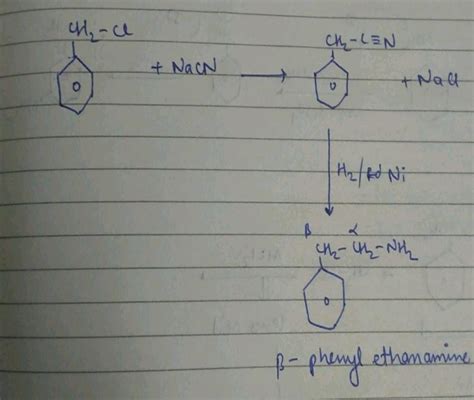 CH₂-Cl
+ NaCN
CH₂-C≡N
+ NaCl
H₂/ Ni
β α
CH₂-CH₂-NH₂
β- phenyl ethanamine